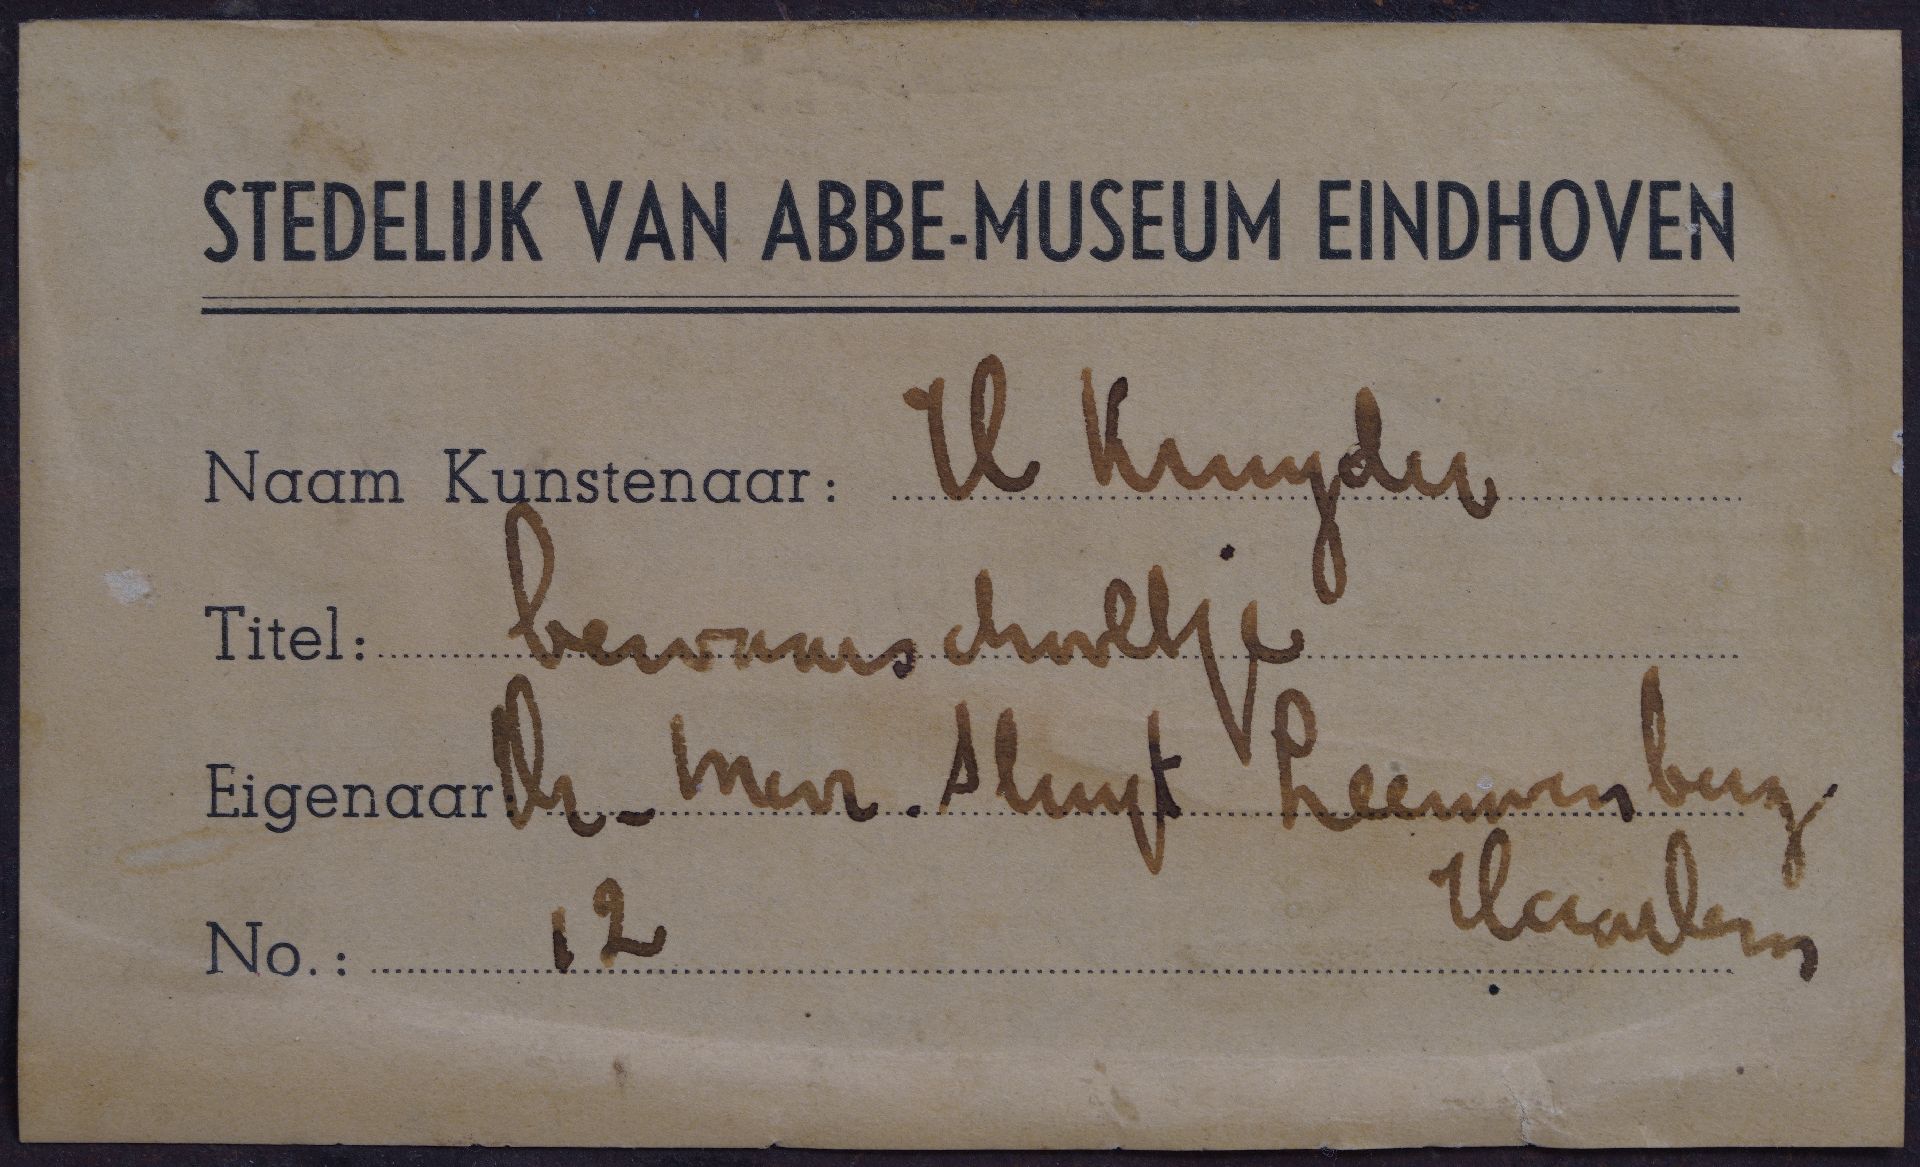 STEDELIJK VAN ABBE-MUSEUM EINDHOVEN
Naam Kunstenaar: H Kruyder
Titel: bewaarschooltje
Eigenaar: Mevr. Sluyt Leeuwenberg
Haarlem
No.: 12